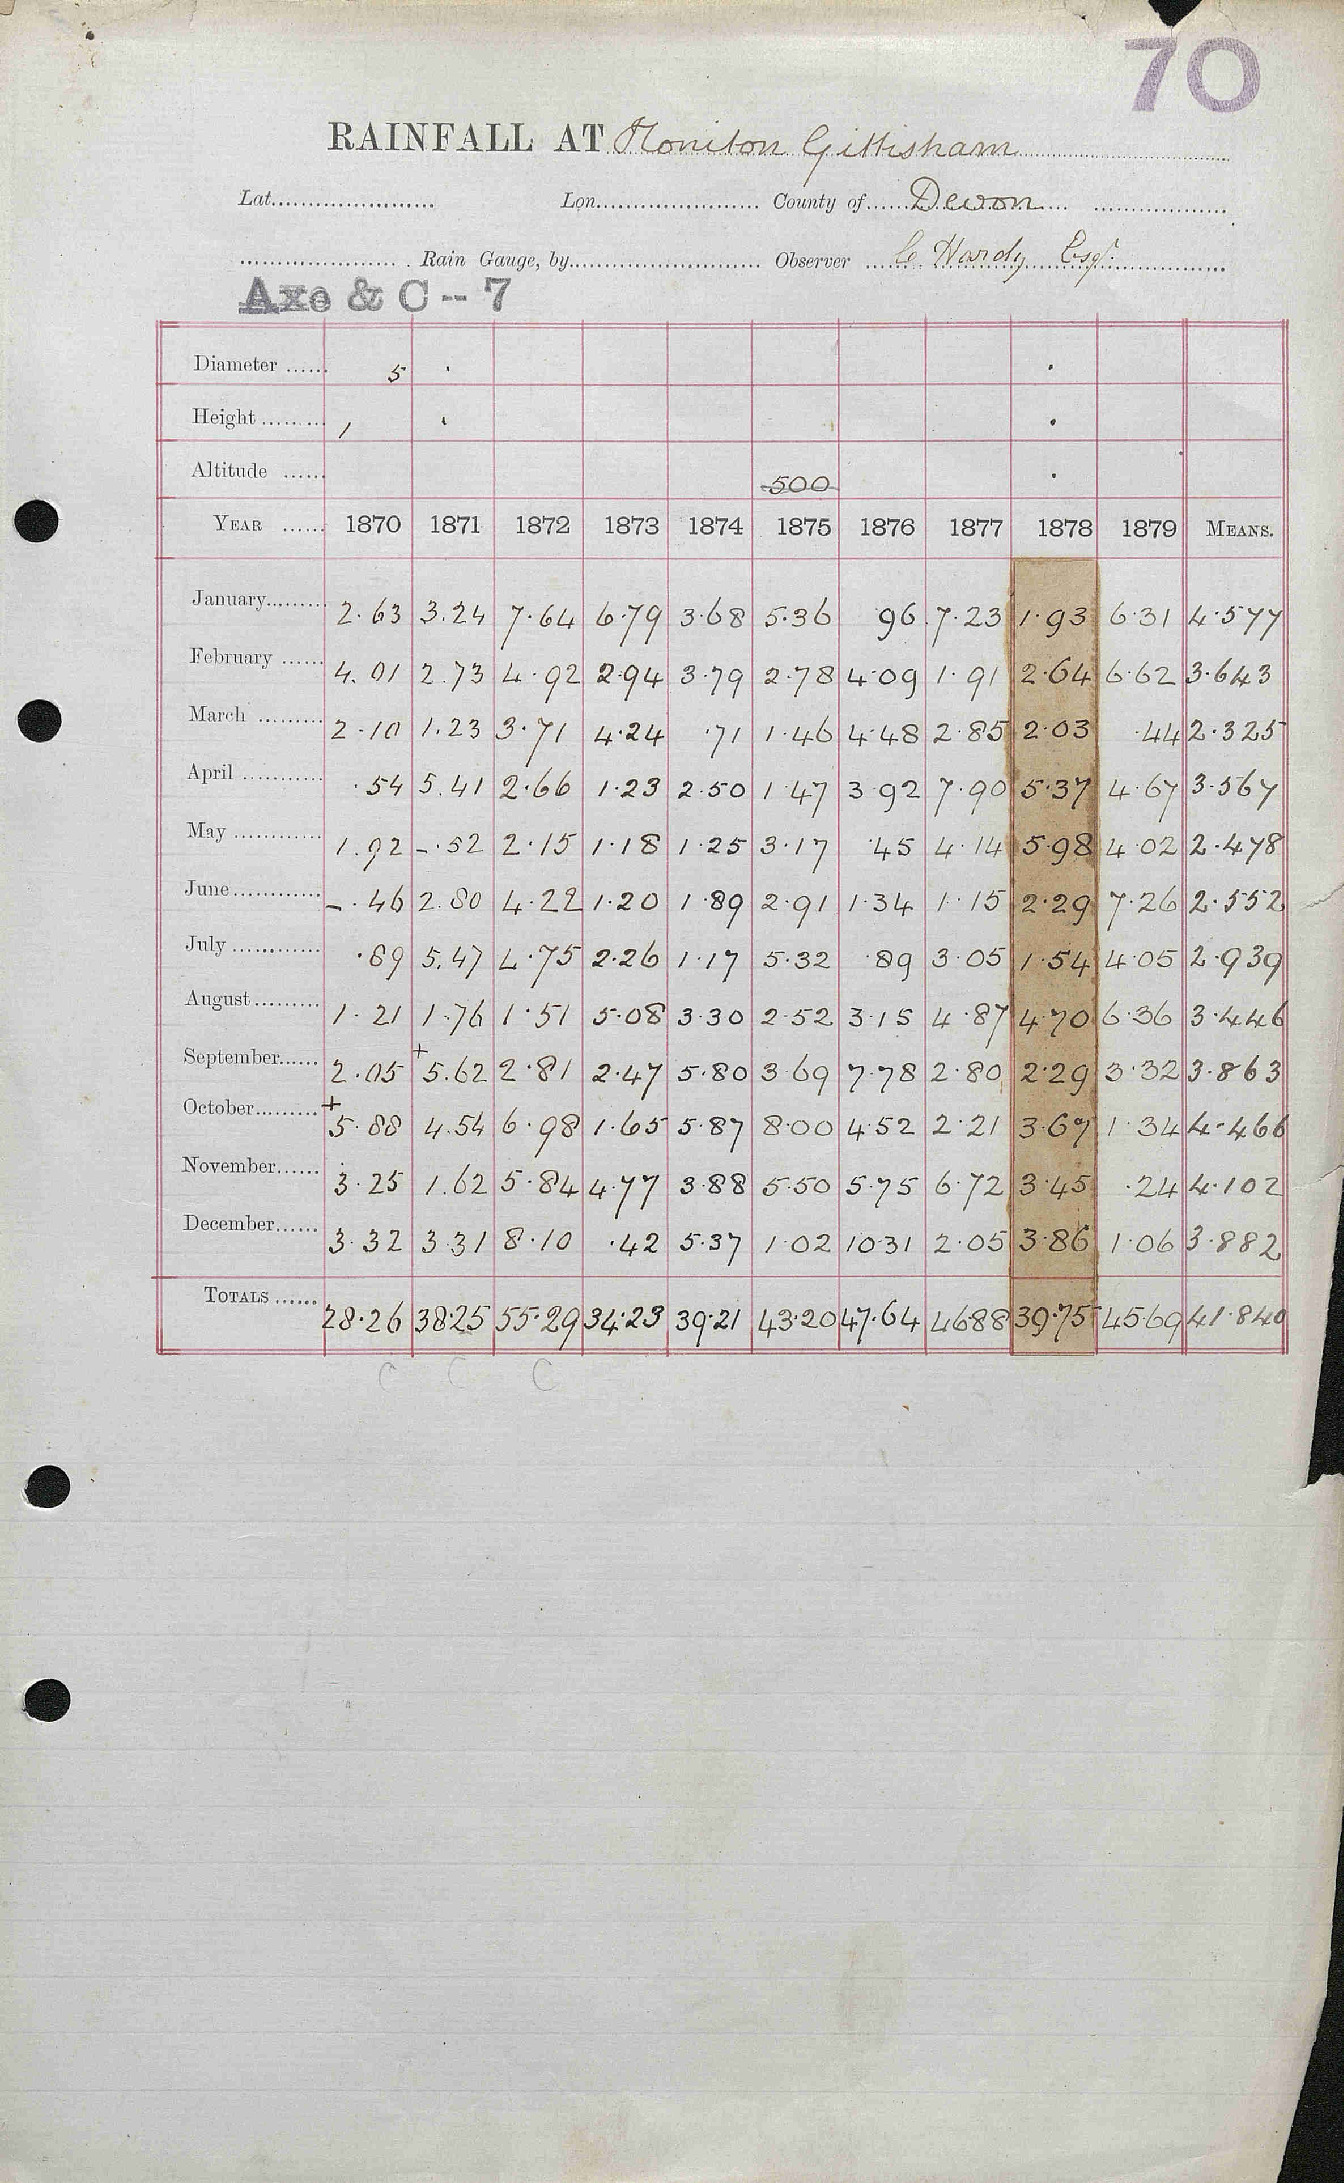 70
RAINFALL AT Honiton Gittisham
Lat. Lon. County of Devon
Rain Gauge, by Observer C Hardy Esqr.
Axe & C -- 7
Diameter 5
Height 1
Altitude 500
YEAR 1870 1871 1872 1873 1874 1875 1876 1877 1878 1879 MEANS.
January 2.63 3.24 7.64 6.79 3.68 5.36 96 7.23 1.93 6.31 4.577
February 4.01 2.73 4.92 2.94 3.79 2.78 4.09 1.91 2.64 6.62 3.643
March 2.10 1.23 3.71 4.24 .71 1.46 4.48 2.85 2.03 .44 2.325
April .54 5.41 2.66 1.23 2.50 1.47 3.92 7.90 5.37 4.67 3.567
May 1.92 -.52 2.15 1.18 1.25 3.17 .45 4.14 5.98 4.02 2.478
June -.46 2.80 4.22 1.20 1.89 2.91 1.34 1.15 2.29 7.26 2.552
July .89 5.47 4.75 2.26 1.17 5.32 .89 3.05 1.54 4.05 2.939
August 1.21 1.76 1.51 5.08 3.30 2.52 3.15 4.87 4.70 6.36 3.446
September 2.05 +5.62 2.81 2.47 5.80 3.69 7.78 2.80 2.29 3.32 3.863
October +5.88 4.54 6.98 1.65 5.87 8.00 4.52 2.21 3.67 1.34 4.466
November 3.25 1.62 5.84 4.77 3.88 5.50 5.75 6.72 3.45 .24 4.102
December 3.32 3.31 8.10 .42 5.37 1.02 10.31 2.05 3.86 1.06 3.882
TOTALS 28.26 38.25 55.29 34.23 39.21 43.20 47.64 46.88 39.75 45.69 41.840
C C C